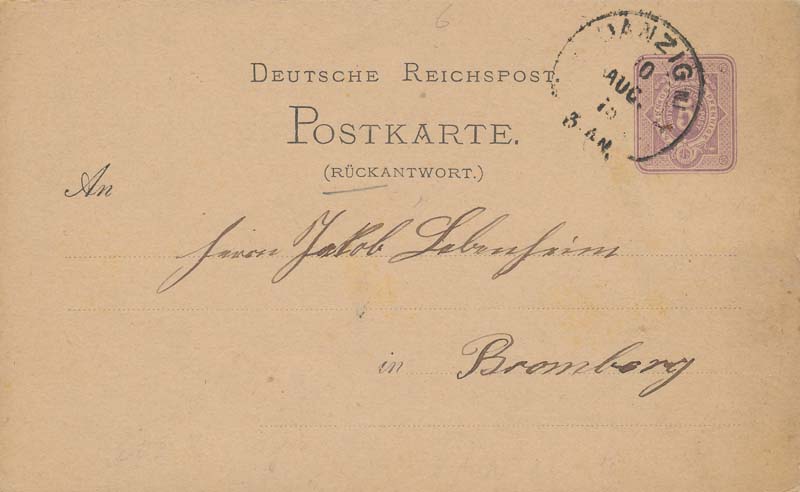 6
DEUTSCHE REICHSPOST.
POSTKARTE.
(RÜCKANTWORT.)
DANZIG
AUG.
An
Herrn Jakob Lebenheim
in Bromberg